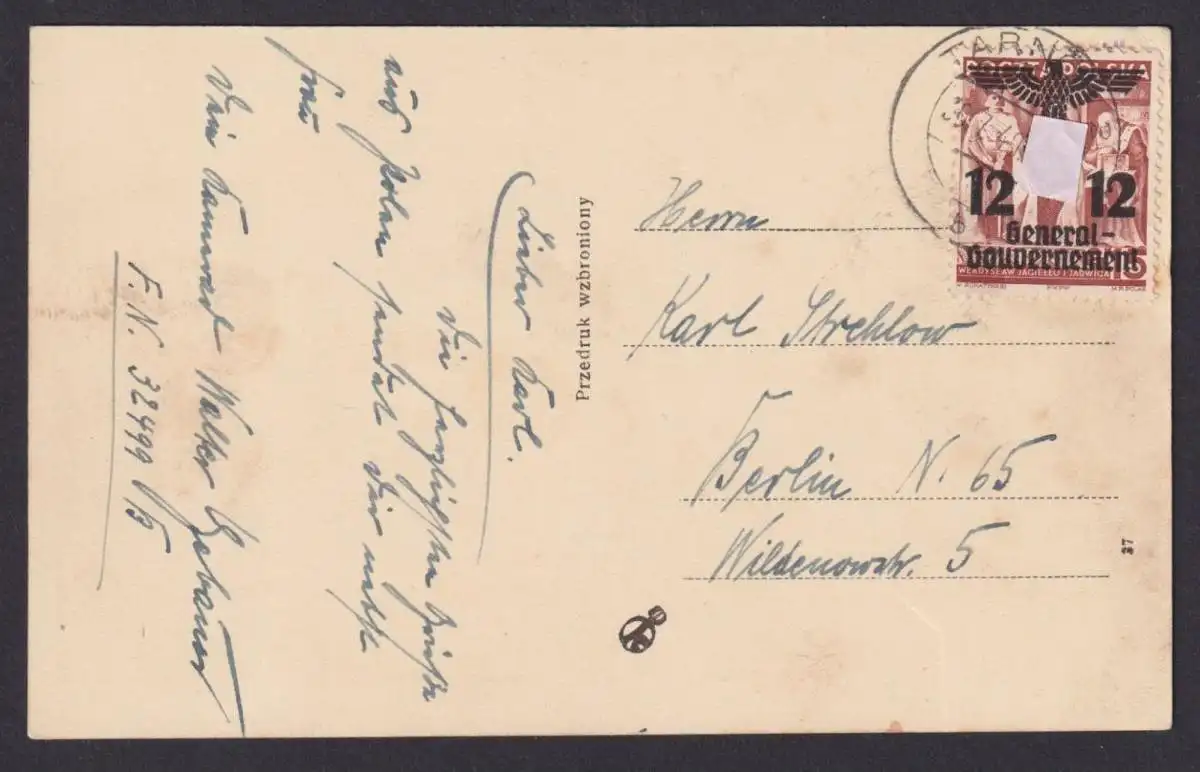 Lieber Karl.
Die herzlichsten Grüße
aus Polen sendet Dir nebst
Frau
Dein Kamerad Walter Gebauer
F.N. 32499
Przedruk wzbroniony
TARN
POCZTA POLSKA
12 12
General-
Gouvernement
WŁADYSŁAW JAGIEŁŁO I JADWIGA
Herrn
Karl Strehlow
Berlin N. 65
Wildenowstr. 5
37